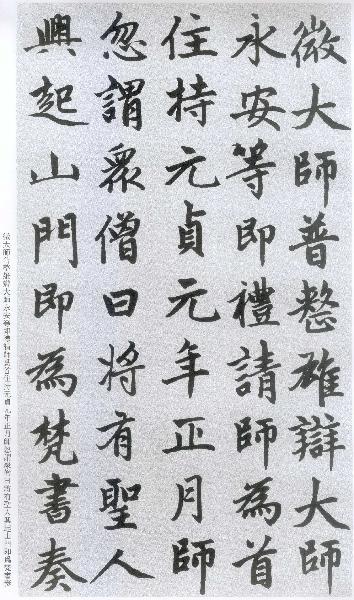 微大師普整雄辯大師
永安等即禮請師為首
住持元貞元年正月師
忽謂眾僧曰將有聖人
興起山門即為梵書奏